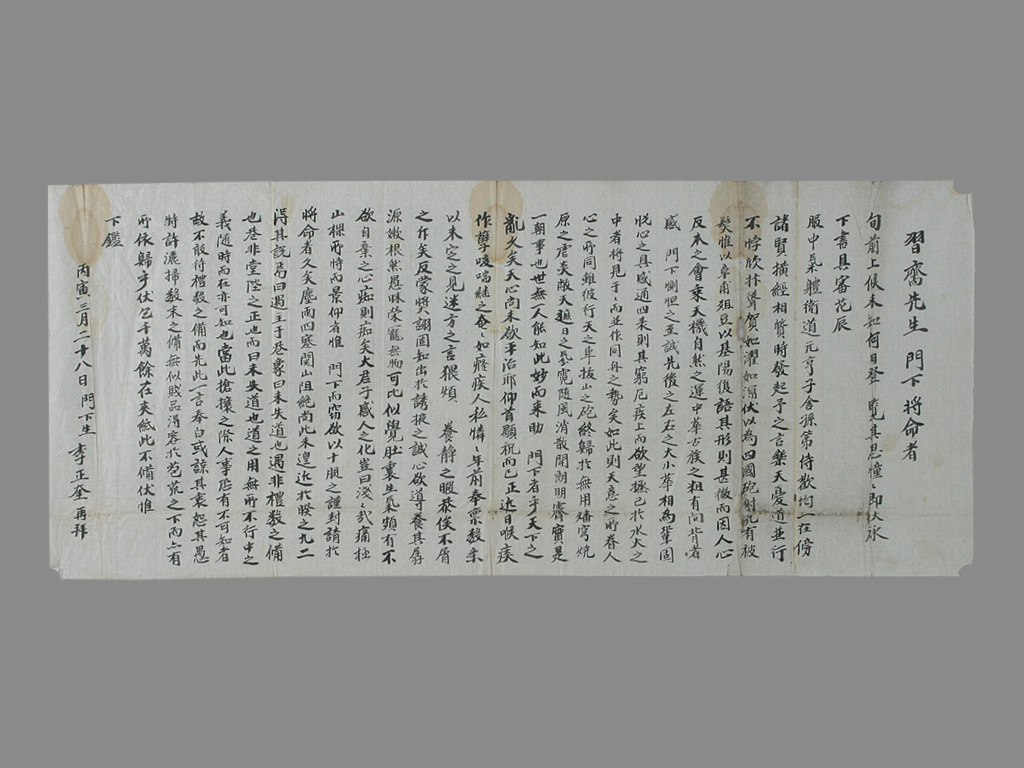 習齋先生 門下將命者
旬前上候未知何日登 覽其悤憧〻卽伏承
下書具審花辰
服中氣體衛道元亨子舍孫第侍歡均一在傍
諸賢橫經相質時發起予之言樂天憂道並行
不悖欣抃聳賀如濯如沐伏以為四國砲射凡有被
髮惟以魯甫俎豆以基陽復語其形則甚微而因人心
反本之會乘天機自然之運中華古族之粗有向背者
感 門下惻怛之至誠先後之左右之大小華相為鞏固
悅心之具感通四表則其窮厄疾上而欲塑撼己於水火之
中者將見于〻而並作同舟之勢矣如此則天意之所眷人
心之所同雖彼行天之車拔山之砲終歸於無用燔穹燒
原之虐炎蔽天遮日之氛霓隨風消散開朗明霽實是
一朝事也世無人能知此妙而來助 門下者乎天下之
亂久矣天心尙未欲平治耶仰首顒祝而已正奎日喉痰
作孽喘喘繼之奄〻如癃疾人私憐〻年前奉稟發余
以未定之見迷方之言猥煩 養靜之暇恭俟不屑
之斥矣反蒙奬詡固知出於誘掖之誠心欲道養其孱
源嫩根然愚昧榮寵無物可比似覺肚裏生氣頗有不
欲自棄之心痴則痴矣大君子感人之化豈曰淺〻哉痛拙
山樸所恃而景仰者惟 門下而窃欲以十朋之謹封請於
將命者久矣塵雨四塞関山阻絶尙此未遑近於睽之九二
得其說焉曰遇主于巷象曰未失道也遇非禮敎之備
也巷非堂陛之正也而曰未失道也道之用無所不行中之
義隨時而在亦可知也當此搶攘之際人事恐有不可知者
故不敢待禮敎之備而先此一言奉白或諒其衷恕其愚
特許灑掃敎末之備無似賤品得容於苞荒之下而亦有
所依歸乎伏乞千萬餘在夾紙此不備伏惟
下鑑
丙寅三月二十八日門下生 李正奎再拜